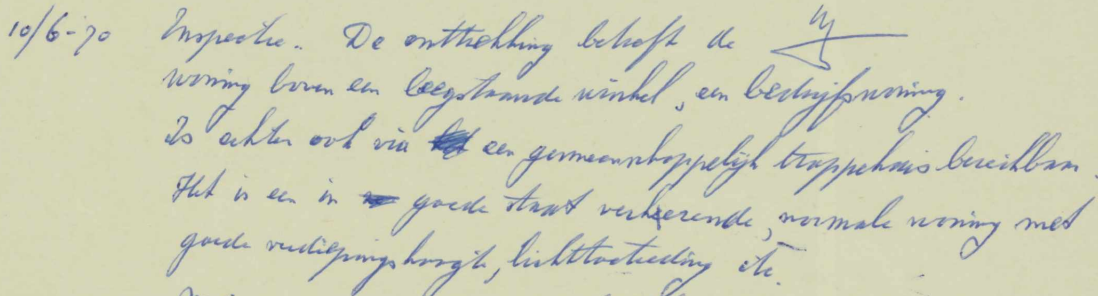 10/6-70 Inspectie. De onttrekking betreft de
woning boven een leegstaande winkel, een bedrijfswoning.
Is echter ook via een gemeenschappelijk trappehuis bereikbaar.
Het is een in goede staat verkeerende, normale woning met
goede verdiepingshoogte, lichttoetreding etc.